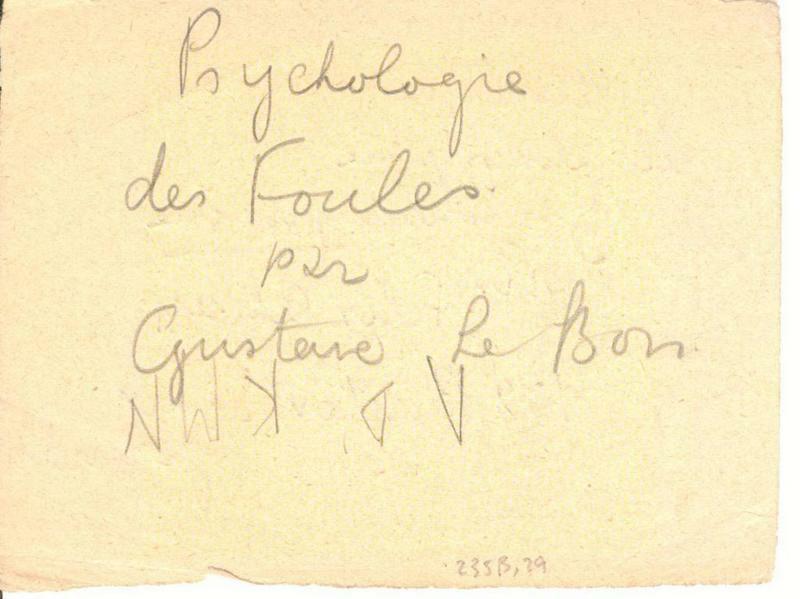 Psychologie
des Foules
par
Gustave Le Bon
235B,29